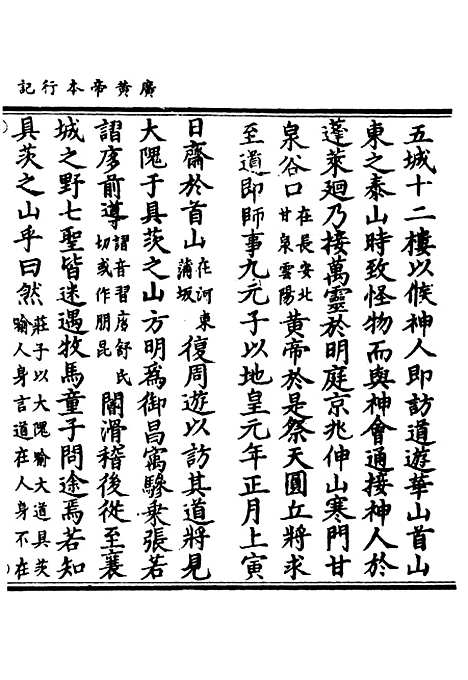 廣黄帝本行記
五城十二樓以候神人即訪道遊華山首山
東之泰山時致怪物而與神會通接神人於
蓬萊廻乃接萬靈於明庭京兆仲山寒門甘
泉谷口在長安北甘泉雲陽黄帝於是祭天圓丘將求
至道即師事九元子以地皇元年正月上寅
日齋於首山在河東蒲坂復周遊以訪其道將見
大隗于具茨之山方明爲御昌㝢驂乗張若
謵㡾前導謵音習㡾舒氏切或作朋昆閽滑稽後從至襄
城之野七聖皆迷遇牧馬童子問途焉若知
具茨之山乎曰然莊子以大隗喻大道具茨喻人身言道在人身不在